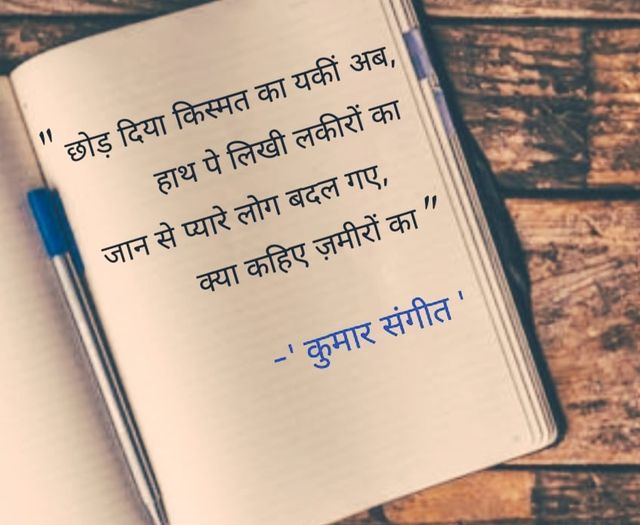 " छोड़ दिया किस्मत का यकीं अब,
हाथ पे लिखी लकीरों का
जान से प्यारे लोग बदल गए,
क्या कहिए ज़मीरों का "
-' कुमार संगीत '